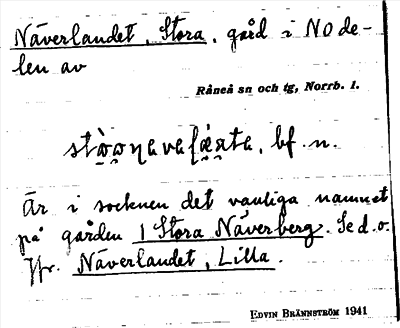 Näverlandet, Stora, gård i NO de-
len av
Råneå sn och tg, Norrb. l.
bf. n.
Är i socknen det vanliga namnet
på gården 1 Stora Näverberg. Se d.o.
Jfr. Näverlandet, Lilla.
EDVIN BRÄNNSTRÖM 1941